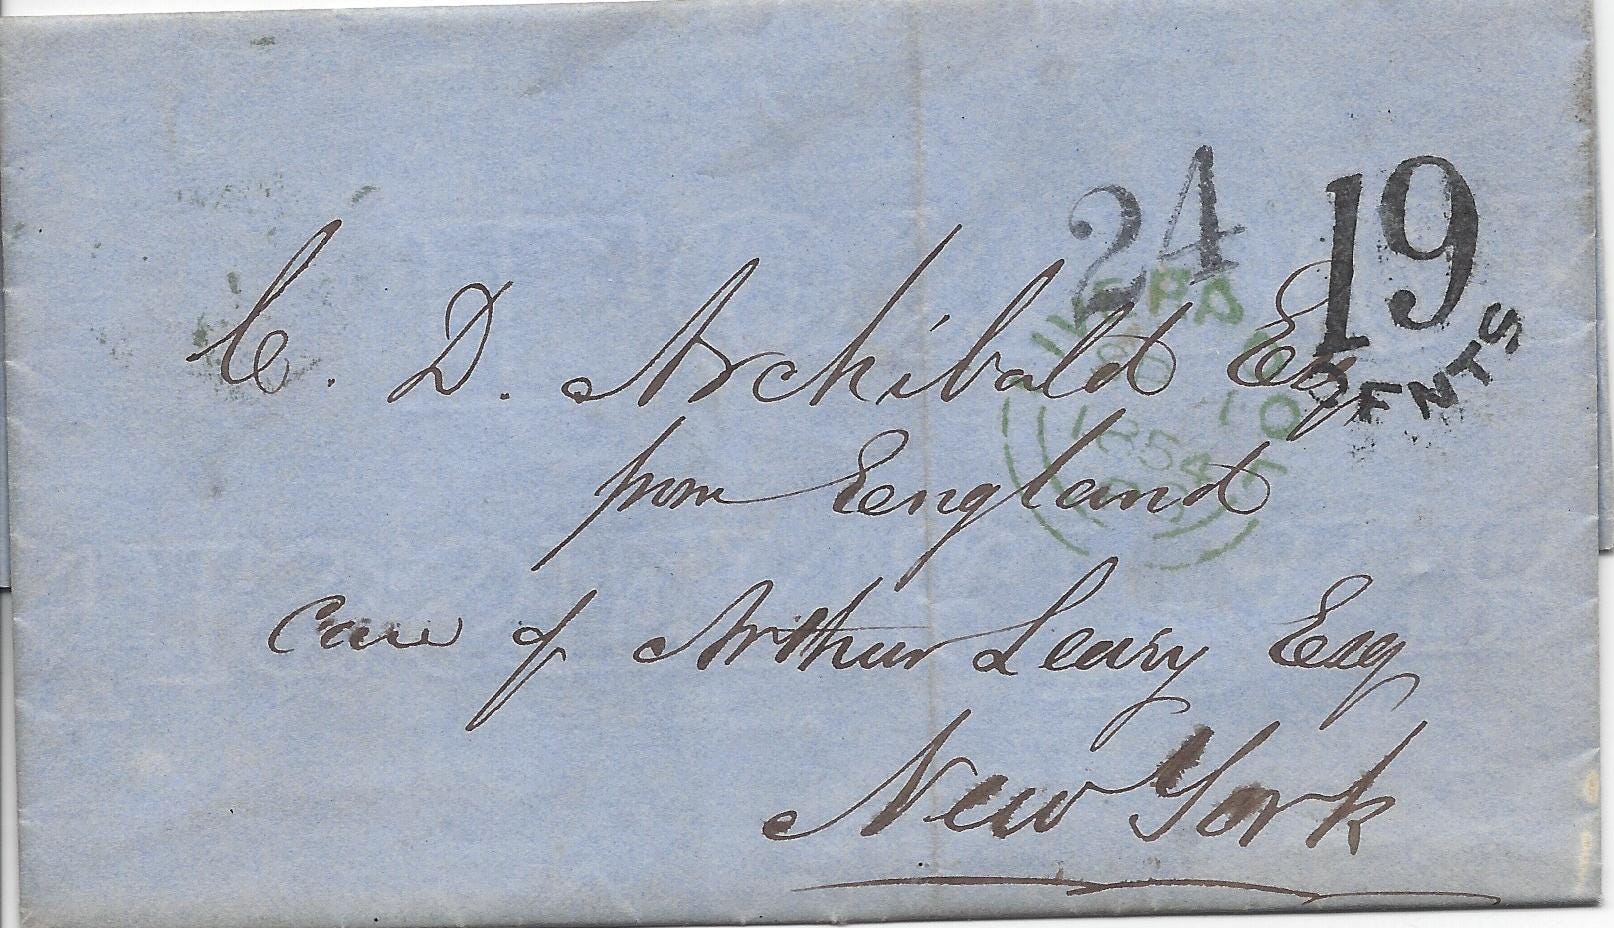 24 19
CENTS
C. D. Archibald Esq
from England
care of Arthur Leary Esq
New York
1854